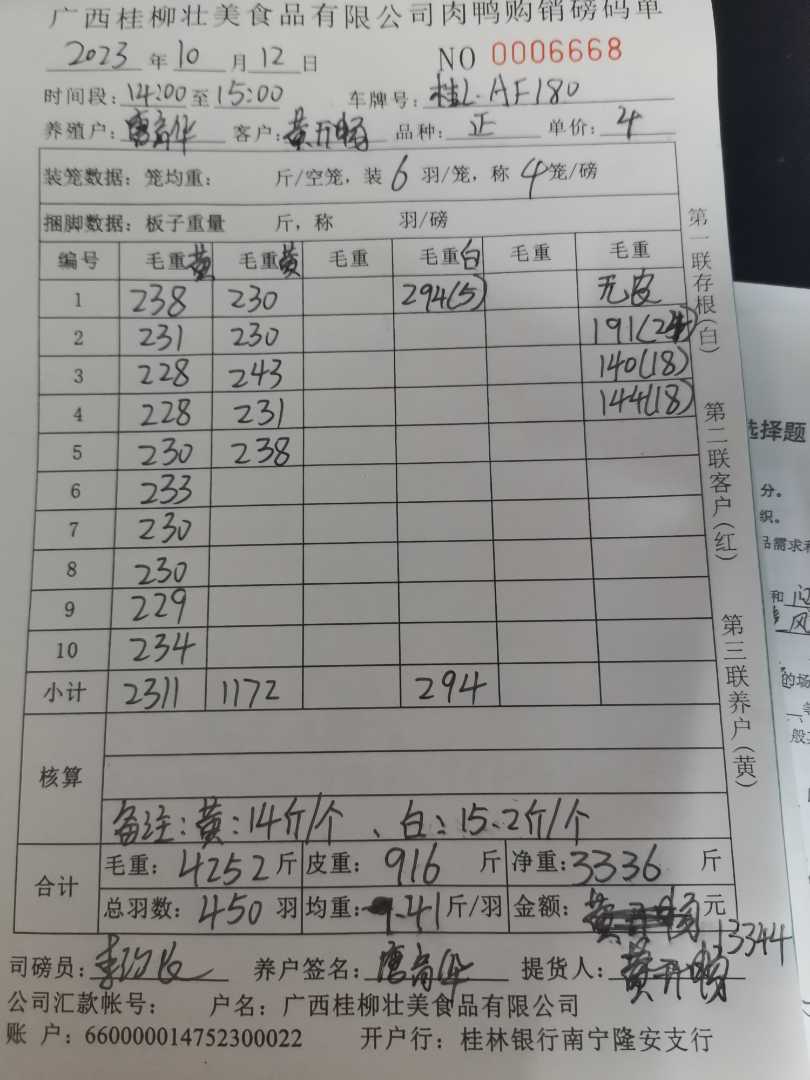 广西桂柳壮美食品有限公司肉鸭购销磅码单
2023 年 10 月 12 日 NO 0006668
时间段: 14:00 至 15:00 车牌号: 桂L·AF180
养殖户: 唐高华 客户: 黄开畅 品种: 正 单价: 4
装笼数据: 笼均重: 斤/空笼, 装 6 羽/笼, 称 4 笼/磅
捆脚数据: 板子重量 斤, 称 羽/磅
编号 毛重黄 毛重黄 毛重 毛重白 毛重 毛重
1 238 230 294(5) 无皮
2 231 230 191(24)
3 228 243 140(18)
4 228 231 144(18)
5 230 238
6 233
7 230
8 230
9 229
10 234
小计 2311 1172 294
核算
备注: 黄: 14斤/个 、白: 15.2斤/个
合计
毛重: 4252 斤 皮重: 916 斤 净重: 3336 斤
总羽数: 450 羽 均重: 7.41 斤/羽 金额: 元
13344
司磅员: 养户签名: 唐高华 提货人: 黄开畅
公司汇款帐号: 户名: 广西桂柳壮美食品有限公司
账 户: 660000014752300022 开户行: 桂林银行南宁隆安支行
第一联存根(白)
第二联客户(红)
第三联养户(黄)
选择题
分。
织。
品需求和